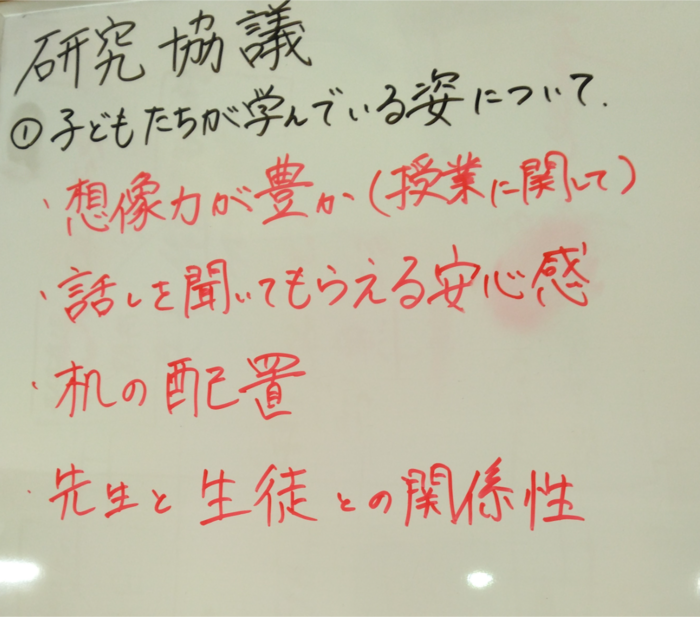 研究協議
①子どもたちが学んでいる姿について.
・想像力が豊か(授業に関して)
・話しを聞いてもらえる安心感
・机の配置
・先生と生徒との関係性